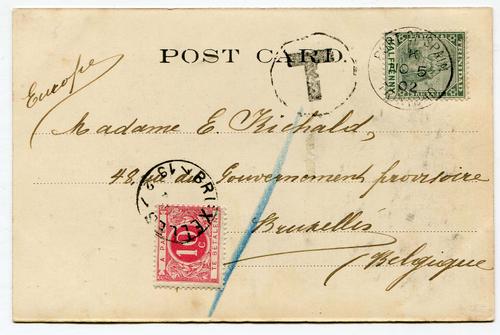 POST CARD.
T
PORT OF SPAIN
OC 5
02
HALFPENNY
Europe
Madame E. Richald,
48, rue du Gouvernement provisoire
Bruxelles
Belgique
BRUXELLES
A PAYER
10
C
TE BETALEN